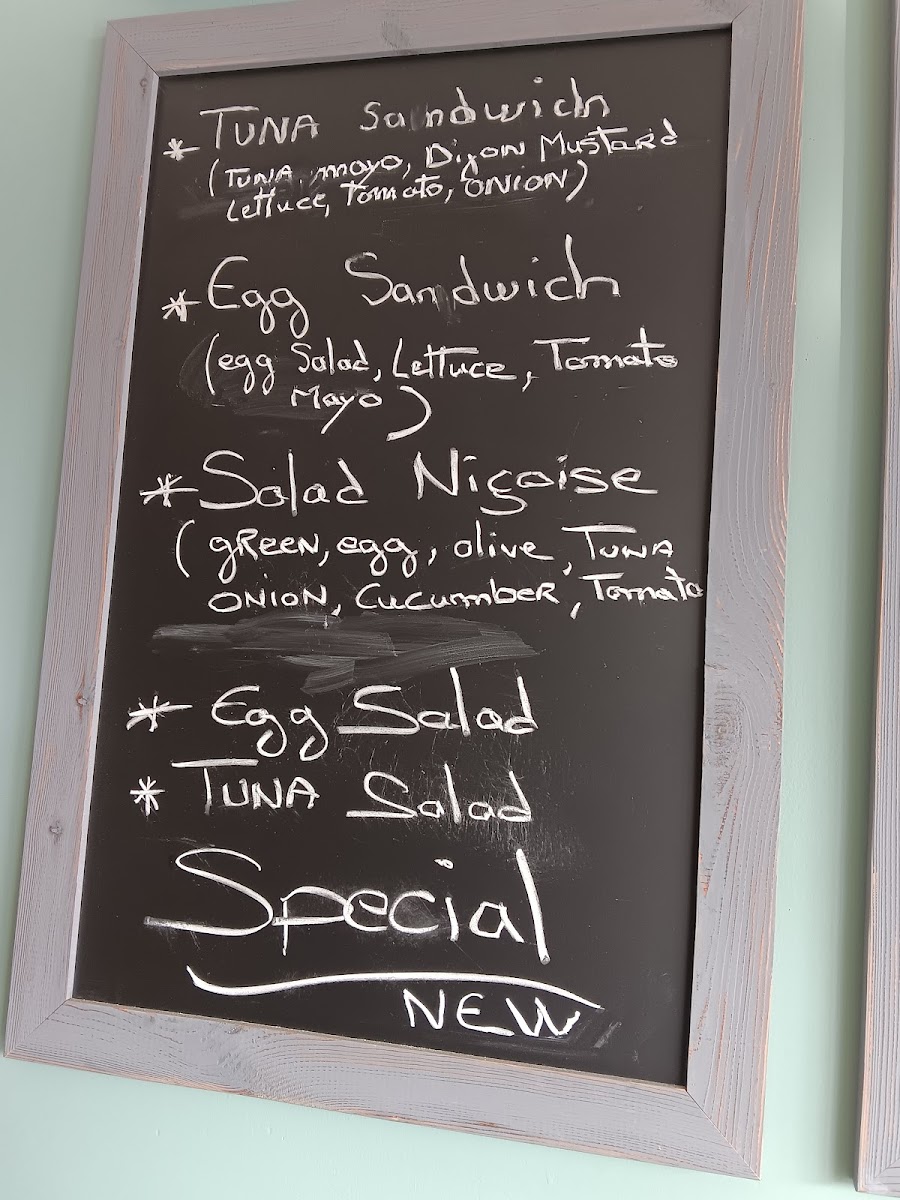 * TUNA Sandwich
(TUNA, mayo, Dijon Mustard
Lettuce, Tomato, ONION)
* Egg Sandwich
(egg Salad, Lettuce, Tomato
Mayo)
* Salad Nigoise
(gREEN, egg, olive, TUNA
ONION, CUCUMBER, Tomato
* Egg Salad
* TUNA Salad
Special
NEW